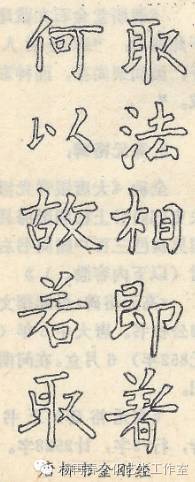 取法相即著
何以故若取
右柳书金刚经
工作室